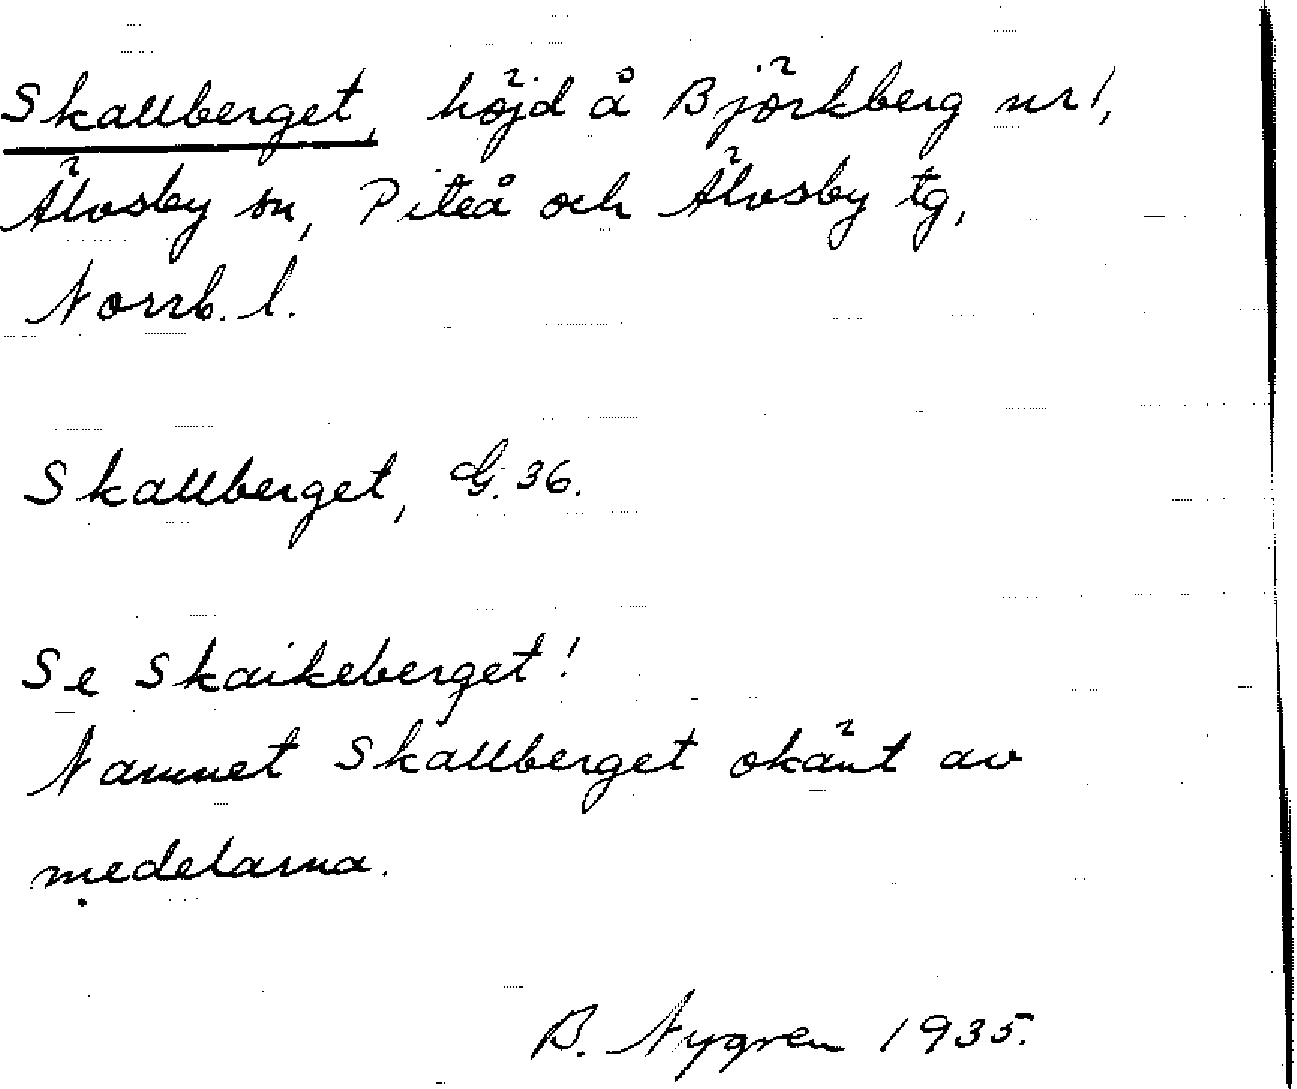 Skallberget, höjd å Björkberg nr 1,
Älvsby sn, Piteå och Älvsby tg,
Norrb. l.
Skallberget, G. 36.
Se Skaikeberget!
Namnet Skallberget okänt av
medelarna.
B. Nygren 1935.